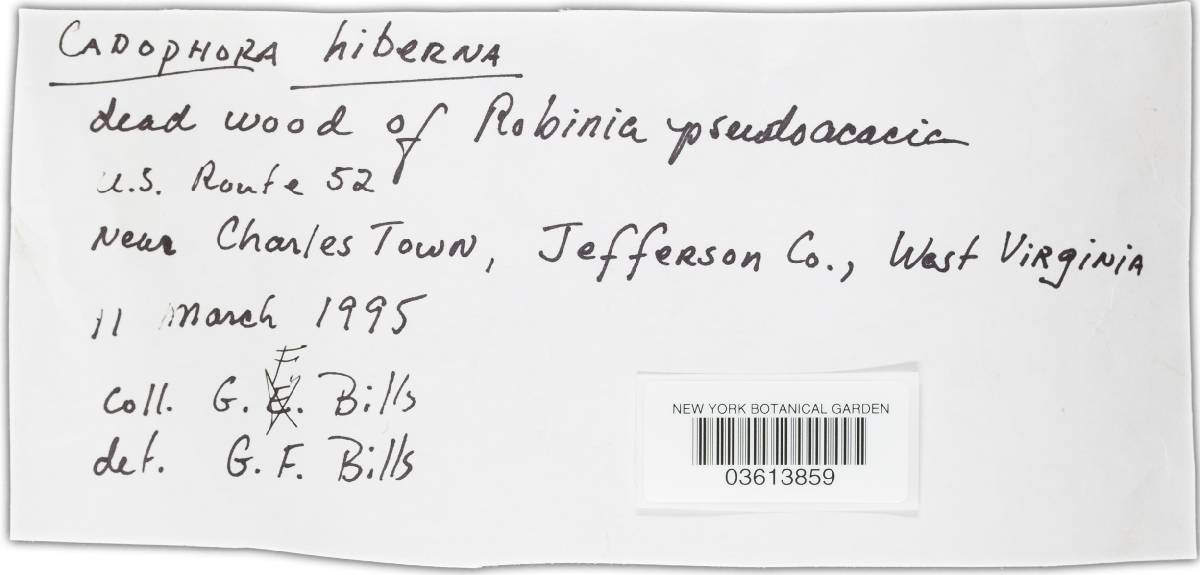 Cadophora hiberna
dead wood of Robinia pseudoacacia
U.S. Route 52
Near Charles Town, Jefferson Co., West Virginia
11 March 1995
coll. G. F. Bills
det. G. F. Bills
NEW YORK BOTANICAL GARDEN
03613859